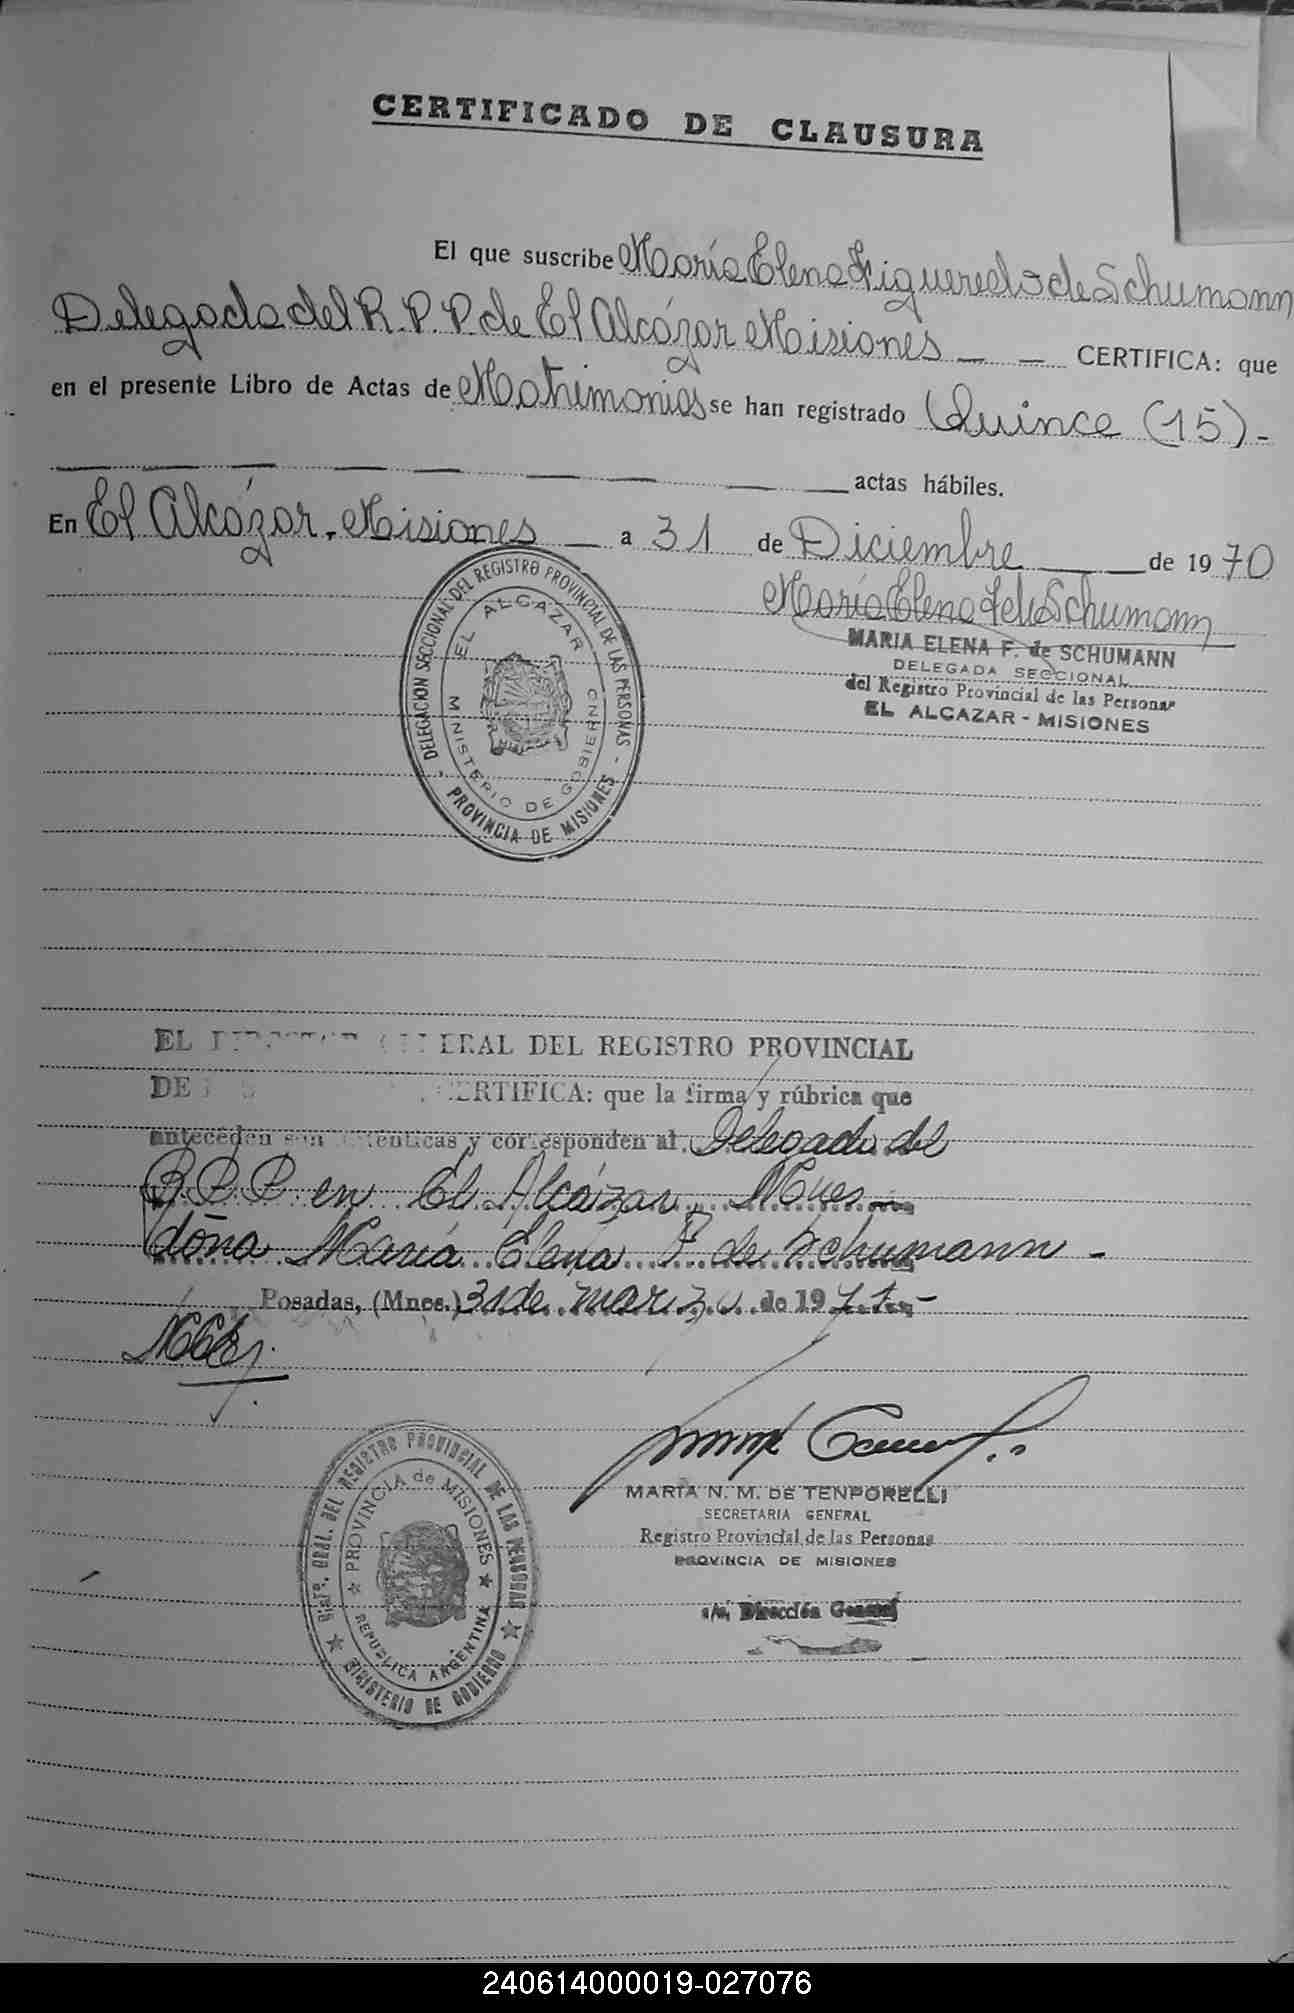 CERTIFICADO DE CLAUSURA
El que suscribe María Elena Figueredo de Schumann
Delegada del R.P.P de El Alcázar Misiones _ _ CERTIFICA: que
en el presente Libro de Actas de Matrimonios se han registrado Quince (15)-
actas hábiles.
En El Alcázar, Misiones _ a 31 de Diciembre _ _ de 1970
María Elena F de Schumann
MARIA ELENA F. de SCHUMANN
DELEGADA SECCIONAL
del Registro Provincial de las Personas
EL ALCAZAR - MISIONES
DELEGACION SECCIONAL DEL REGISTRO PROVINCIAL DE LAS PERSONAS -
PROVINCIA DE MISIONES -
EL ALCAZAR
MINISTERIO DE GOBIERNO
EL GENERAL DEL REGISTRO PROVINCIAL
DE CERTIFICA: que la firma y rúbrica que
anteceden son auténticas y corresponden al Delegado del
R.P.P. en El Alcázar, Mnes
doña María Elena F. de Schumann -
Posadas, (Mnes.) 31 de marzo de 1971 -
MARIA N. M. DE TENPORELLI
SECRETARIA GENERAL
Registro Provincial de las Personas
PROVINCIA DE MISIONES
a/c, Dirección General
GRAL. DEL REGISTRO PROVINCIAL DE LAS PERSONAS
MINISTERIO DE GOBIERNO
PROVINCIA de MISIONES
REPUBLICA ARGENTINA
240614000019-027076